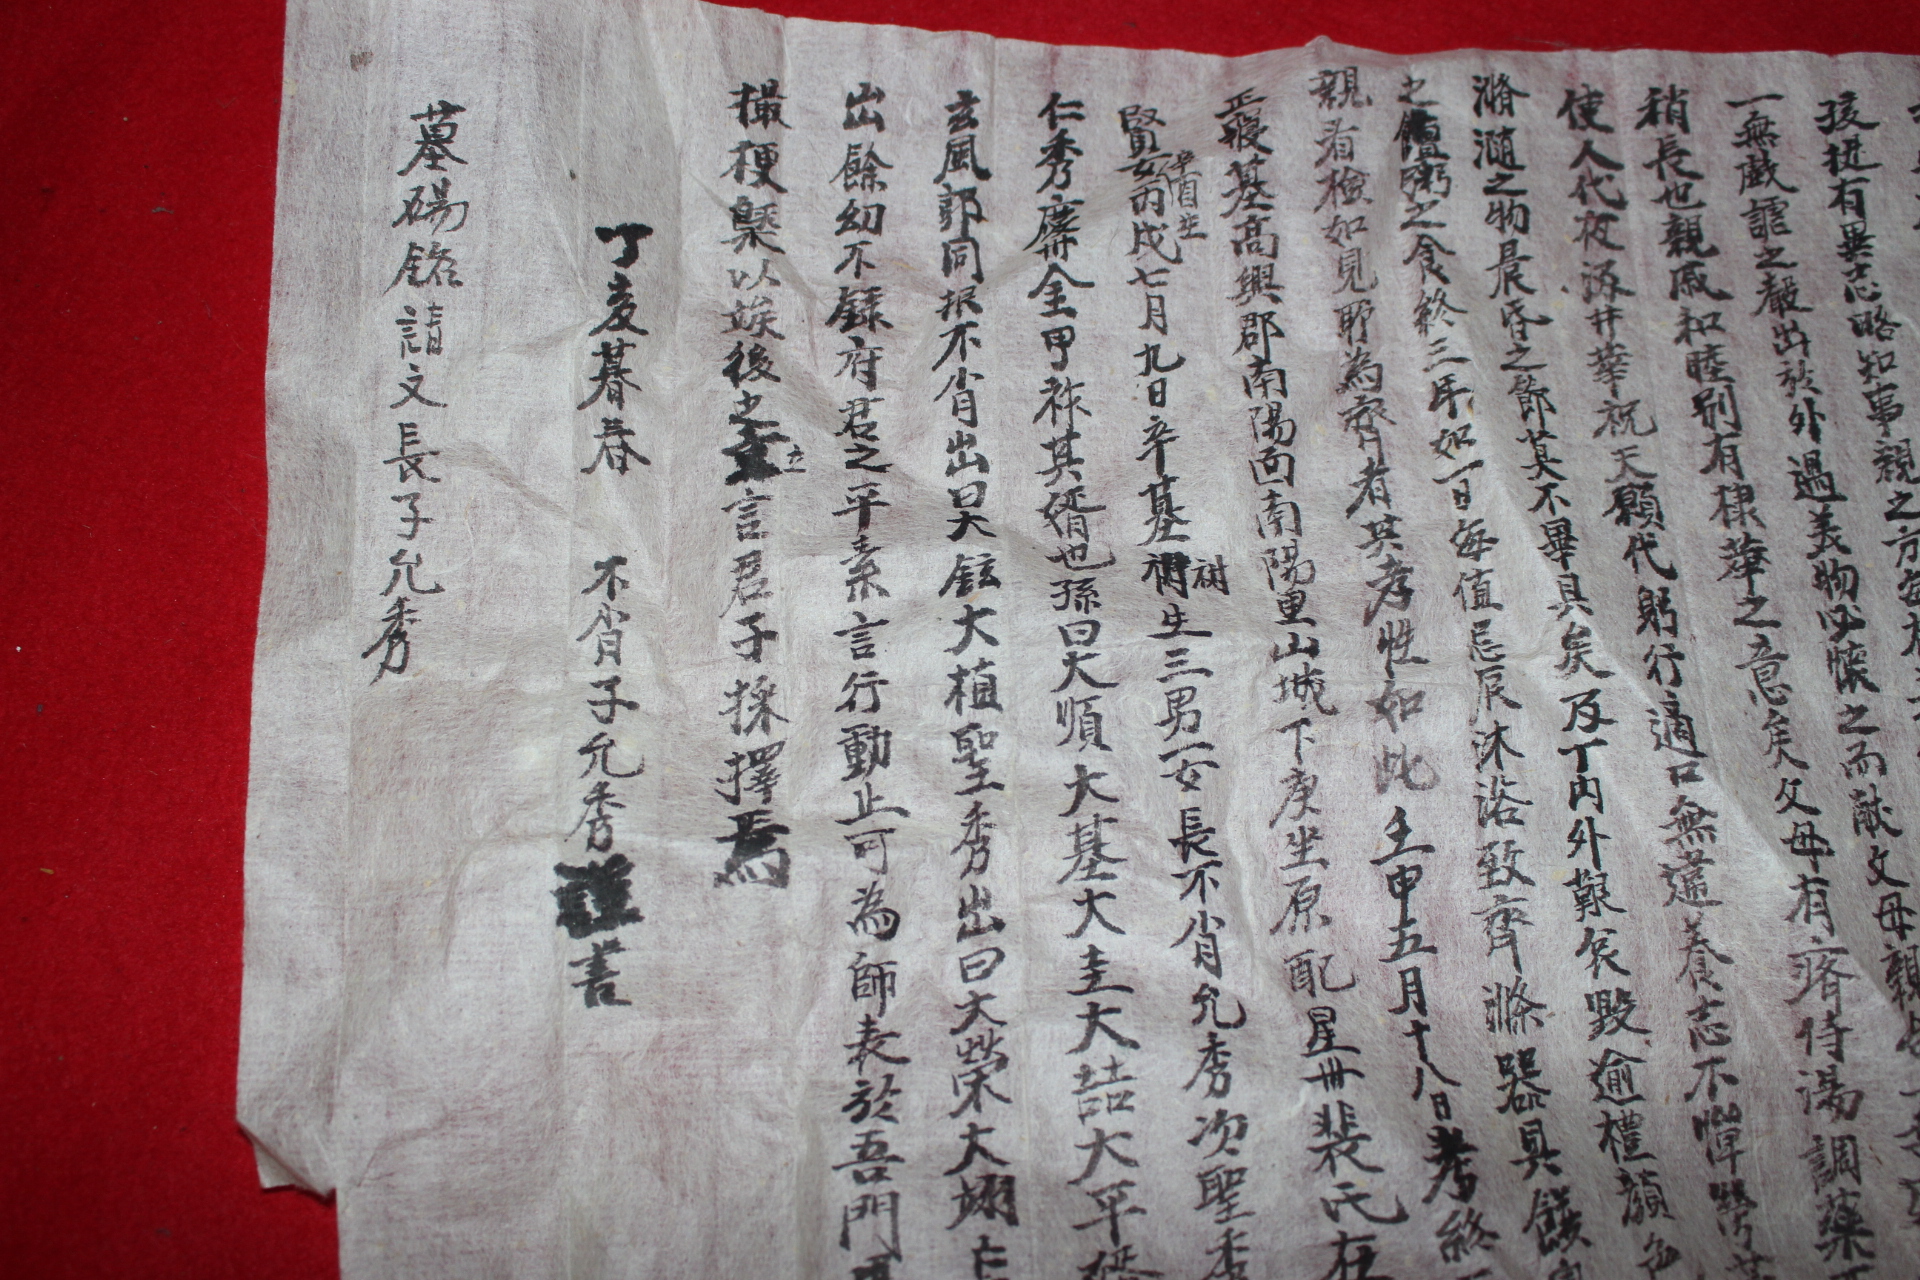 孩提有異志略知事親之方每
一無戱謔之聲出於外過美物必懷之而献父母親
稍長也親戚和睦別有棣華之意矣父母有疾侍湯調藥
使人代夜汲井華祝天願代躬行適口無違養志不憚勞
滫瀡之物晨昏之節莫不畢具矣及丁內外艱哀毀逾禮顔
之饘粥之食終三年如一日每値忌辰沐浴致齊滌器具饌
親看檢如見所為齊者其孝性如此壬申五月十八日考終
正寢墓高興郡南陽面南陽里山城下庚坐原配星州裴氏在
賢女辛酉生丙戌七月九日卒墓祔生三男一女長不肖允秀次聖秀
仁秀慶州金甲祚其婿也孫曰大順大基大圭大喆大平婿
玄風郭同根不肖出曰大鉉大植聖秀出曰大榮大翊
出餘幼不錄府君之平素言行動止可為師表於吾門
撮梗槩以竢後之立言君子採擇焉
丁亥暮春 不肖子允秀謹書
墓碣銘請文長子允秀